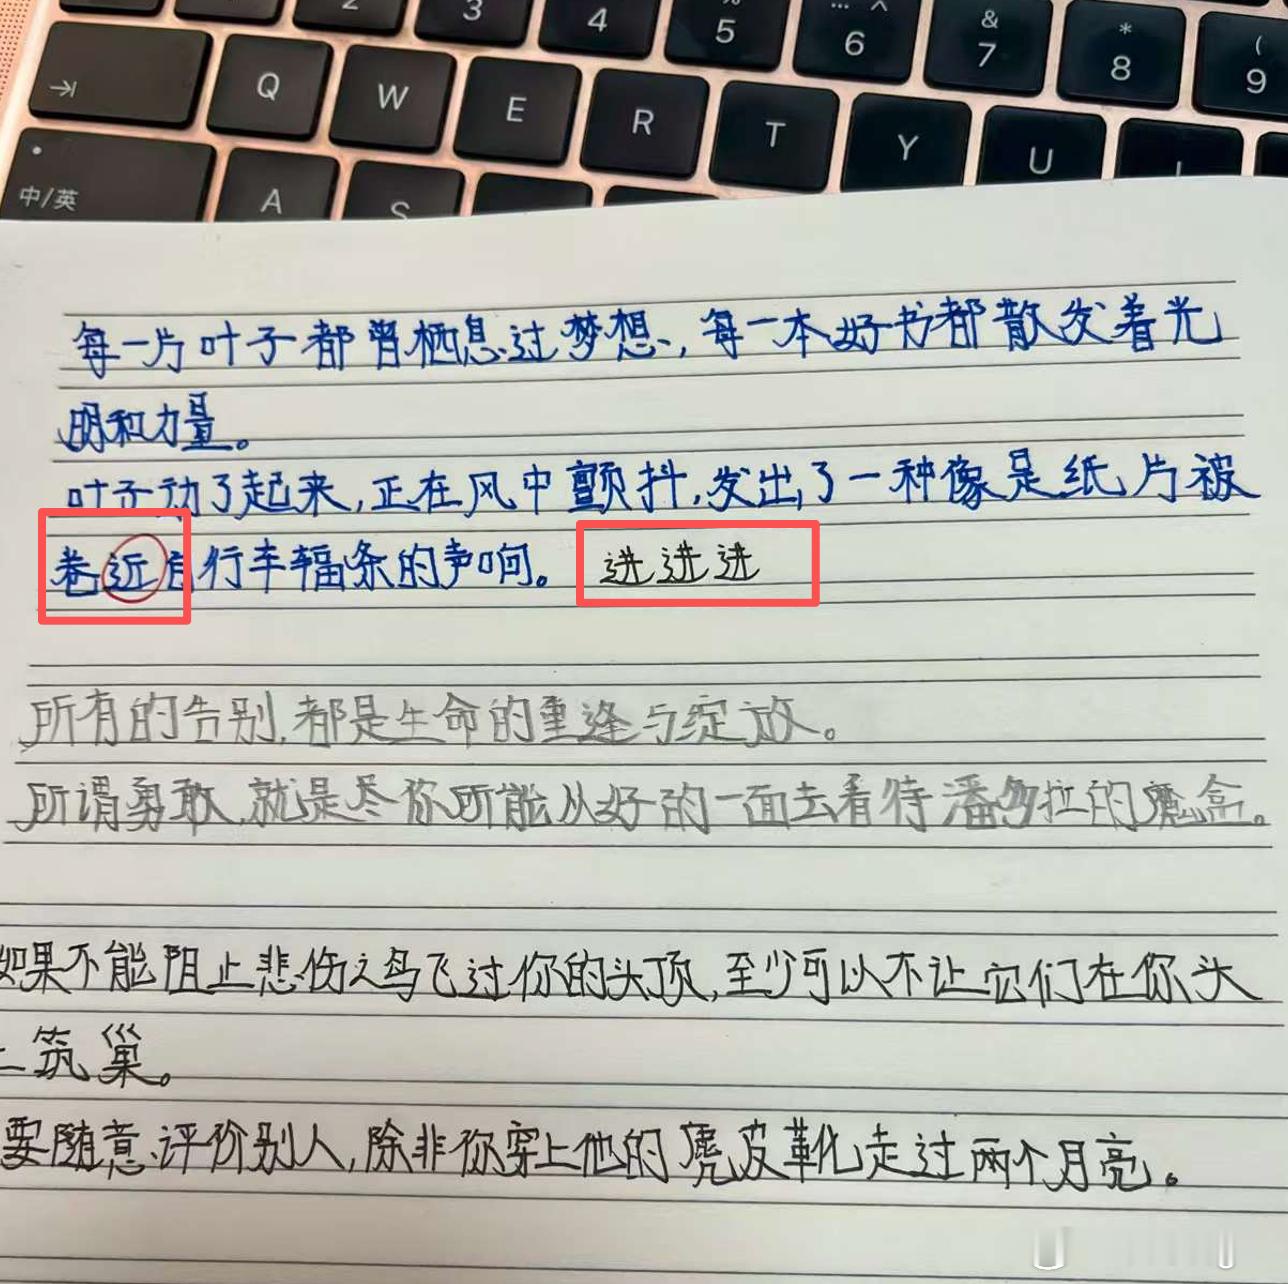 2 3 4 % 5 … ^ 6 & 7 * 8 ( 9
Q W E R T Y U
中/英 A S
每一片叶子都曾栖息过梦想,每一本好书都散发着光
明和力量。
叶子动了起来,正在风中颤抖,发出了一种像是纸片被
卷近自行车辐条的声响。 进进进
所有的告别,都是生命的重逢与绽放。
所谓勇敢,就是尽你所能从好的一面去看待潘多拉的魔盒。
如果不能阻止悲伤之鸟飞过你的头顶,至少可以不让它们在你头
上筑巢。
要随意评价别人,除非你穿上他的鹿皮靴走过两个月亮。